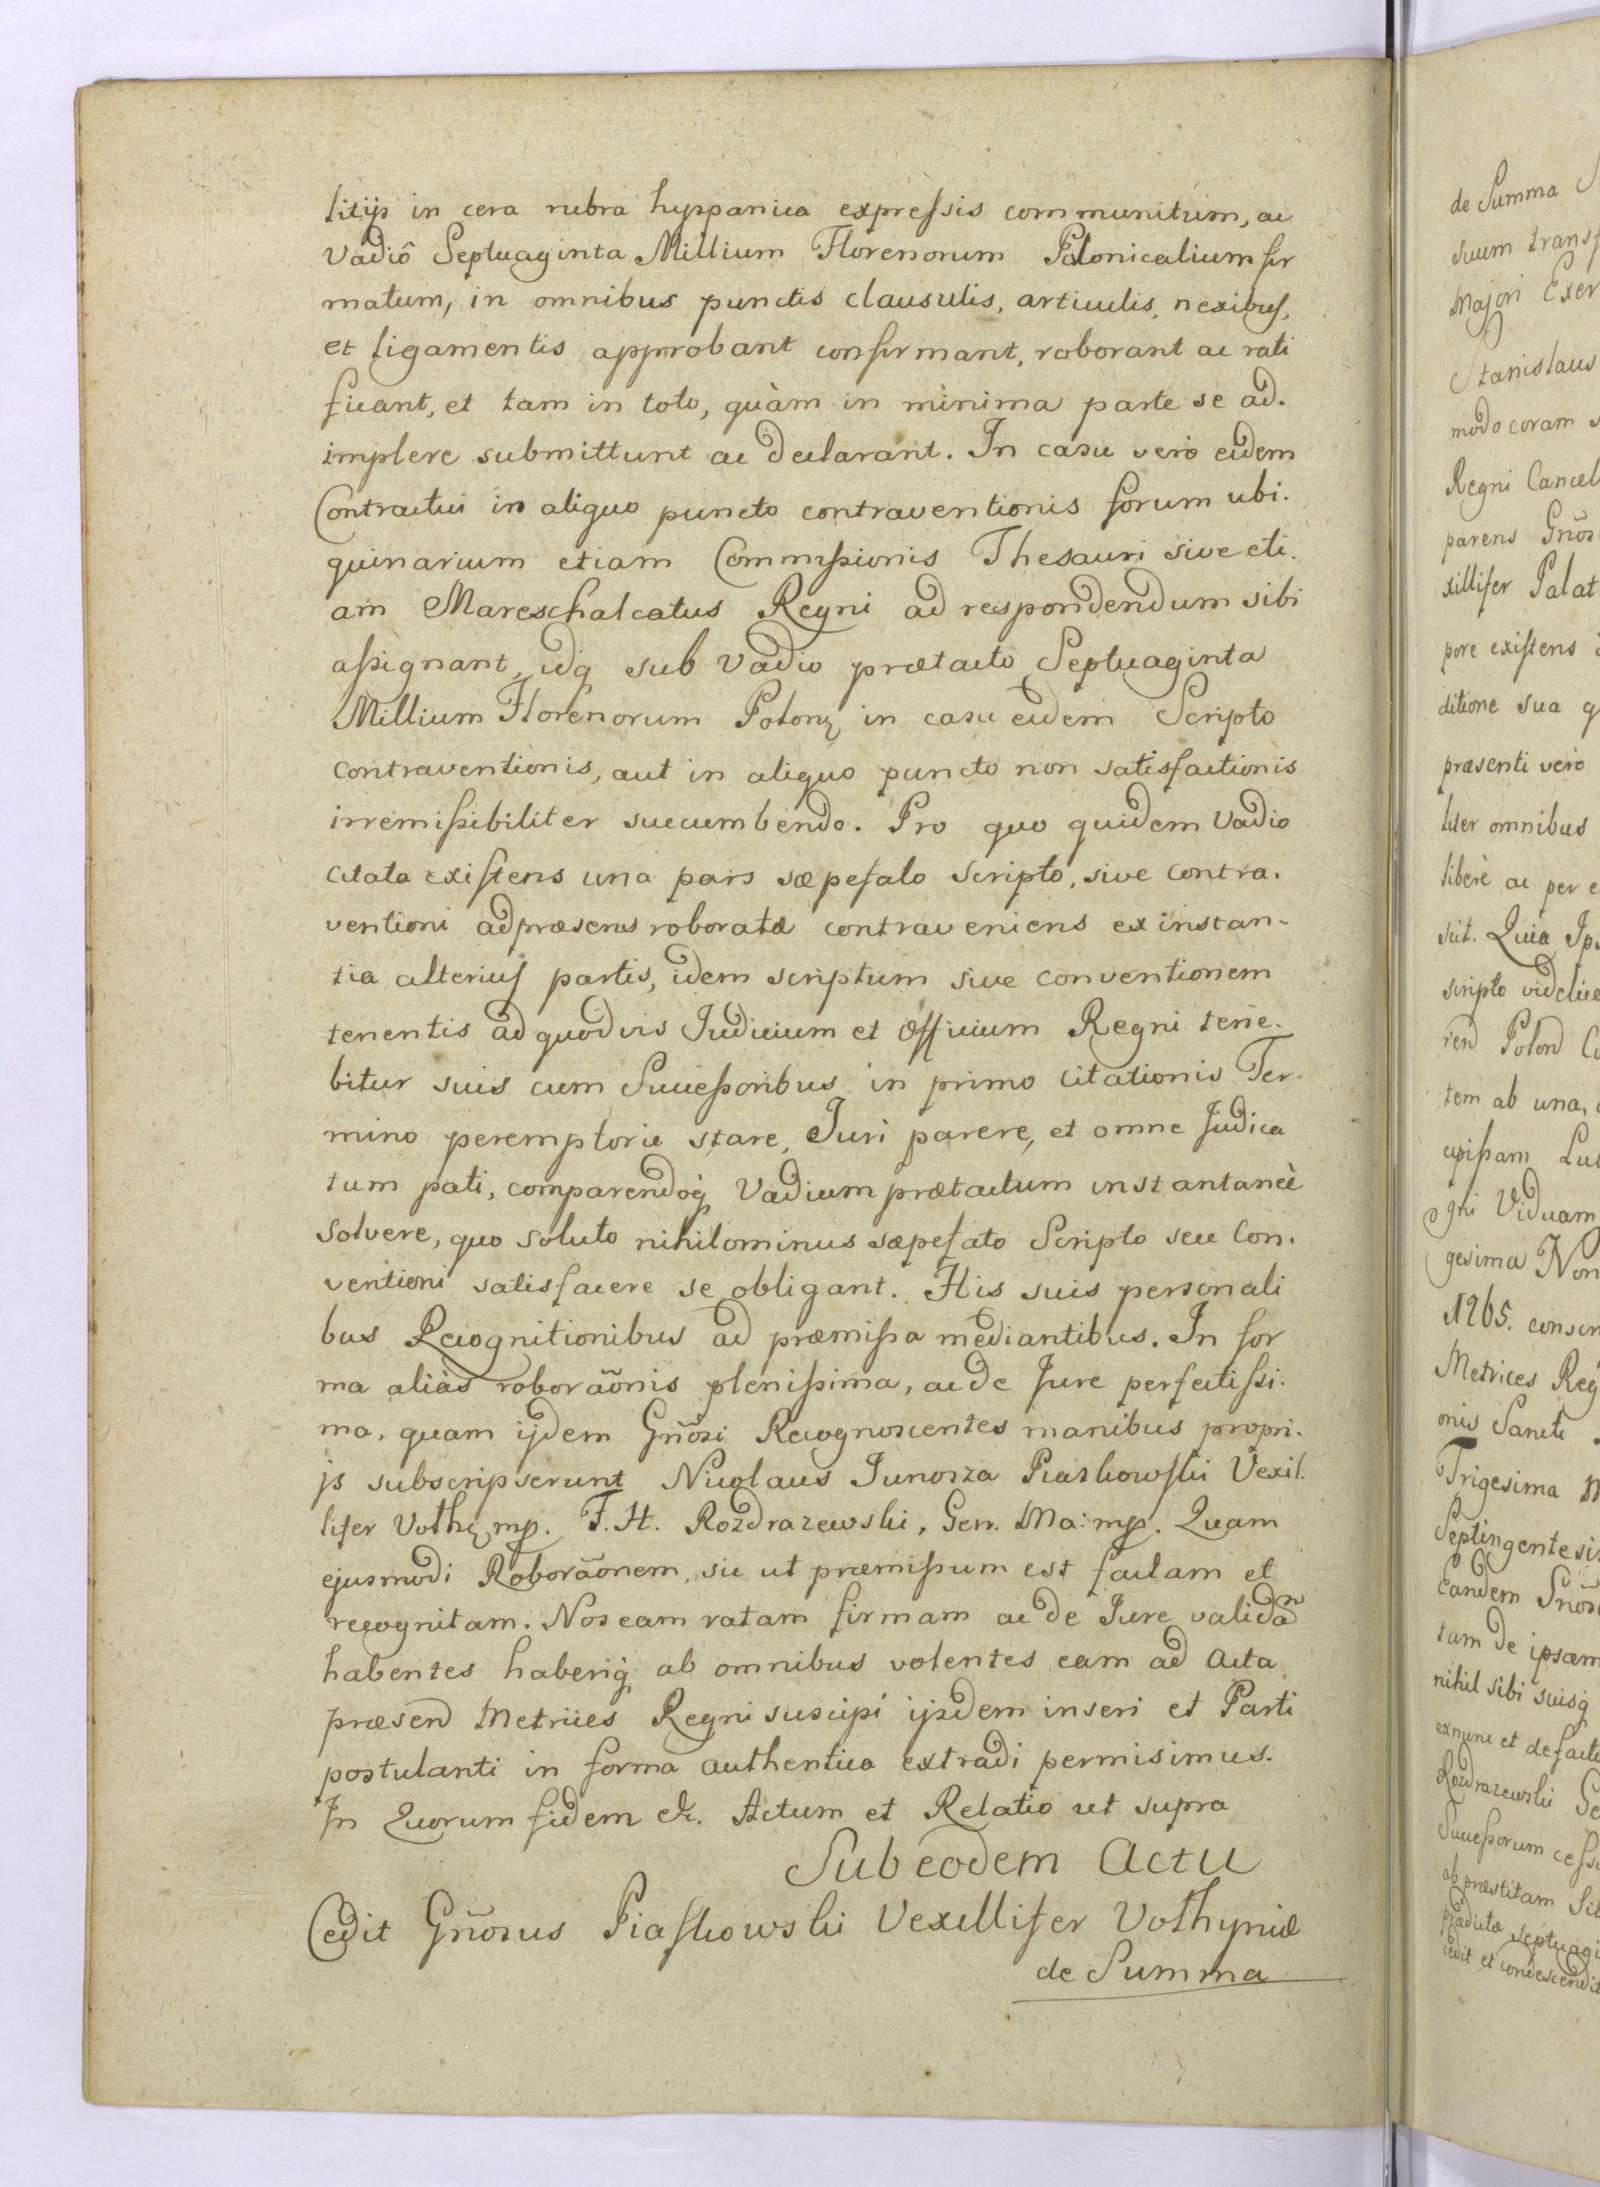 litijs in cera rubra hyspanica expressis communitum, ac
Vadiô Septuaginta Millium Florenorum Polonicalium fir
matum, in omnibus punctis clausulis, articulis, nexibus,
et ligamentis approbant confirmant, roborant ac rati
ficant, et tam in toto, quàm in minima parte se ad.
implere submittunt ac declarant. In casu verò eidem
Contractui in aliquo puncto contraventionis forum ubi.
quinarium etiam Commissionis Thesauri sive eti.
am Mareschalcatus Regni ad respondendum sibi
assignant, idq sub Vadio prætacto Septuaginta
Millium Florenorum Polon in casu eidem Scripto
contraventionis, aut in aliquo puncto non satisfactionis
irremissibiliter succumbendo. Pro quo quidem Vadio
citata existens una pars sæpefato scripto, sive contra.
ventioni adpræsens roboratæ contraveniens ex instan-
tia alterius partis, idem scriptum sive conventionem
tenentis ad quodvis Judicium et Officium Regni tene.
bitur suis cum Successoribus in primo citationis Ter-
mino peremptorie stare, Juri parere, et omne Judica
tum pati, comparendoq Vadium prætactum instantaneè
solvere, quo soluto nihilominus sæpefato Scripto seu Con.
ventioni satisfacere se obligant. His suis personali
bus Recognitionibus ad præmissa mediantibus. In for
ma aliàs roborãonis plenissima, ac de Jure perfectissi.
ma, quam ijdem Gñosi Recognoscentes manibus propri.
js subscripserunt Nicolaus Junosza Piaskowski Vexil.
lifer Volh mp. F. H. Rozdrazewski, Gen. Ma: mp. Quam
ejusmodi Roborãonem, sic ut præmissum est factam et
recognitam. Nos eam ratam firmam ac de Jure validã
habentes haberiq ab omnibus volentes eam ad Acta
præsen Metrices Regni suscipi ijsdem inseri et Parti
postulanti in forma authentica extradi permisimus.
In Quorum fidem &c. Actum et Relatio ut supra
Sub eodem Actu
Cedit Gñosus Piaskowski Vexillifer Volhyniæ
de Summa
de Summa
suum
Majori
Stanislaus
modo coram
Regni
parens
xillifer
pore existens
ditione sua
præsenti verò
liter omnibus
liberè ac per
scit. Quia
scripto
Polon
tem ab una,
Viduam
gesima
1765.
Metrices
onis Sancti
Trigesima
Eandem
tum de
nihil sibi suisq
exnunc et de
Rozdrazewski
Successorum
ab præstitam
prædicta
cedit et